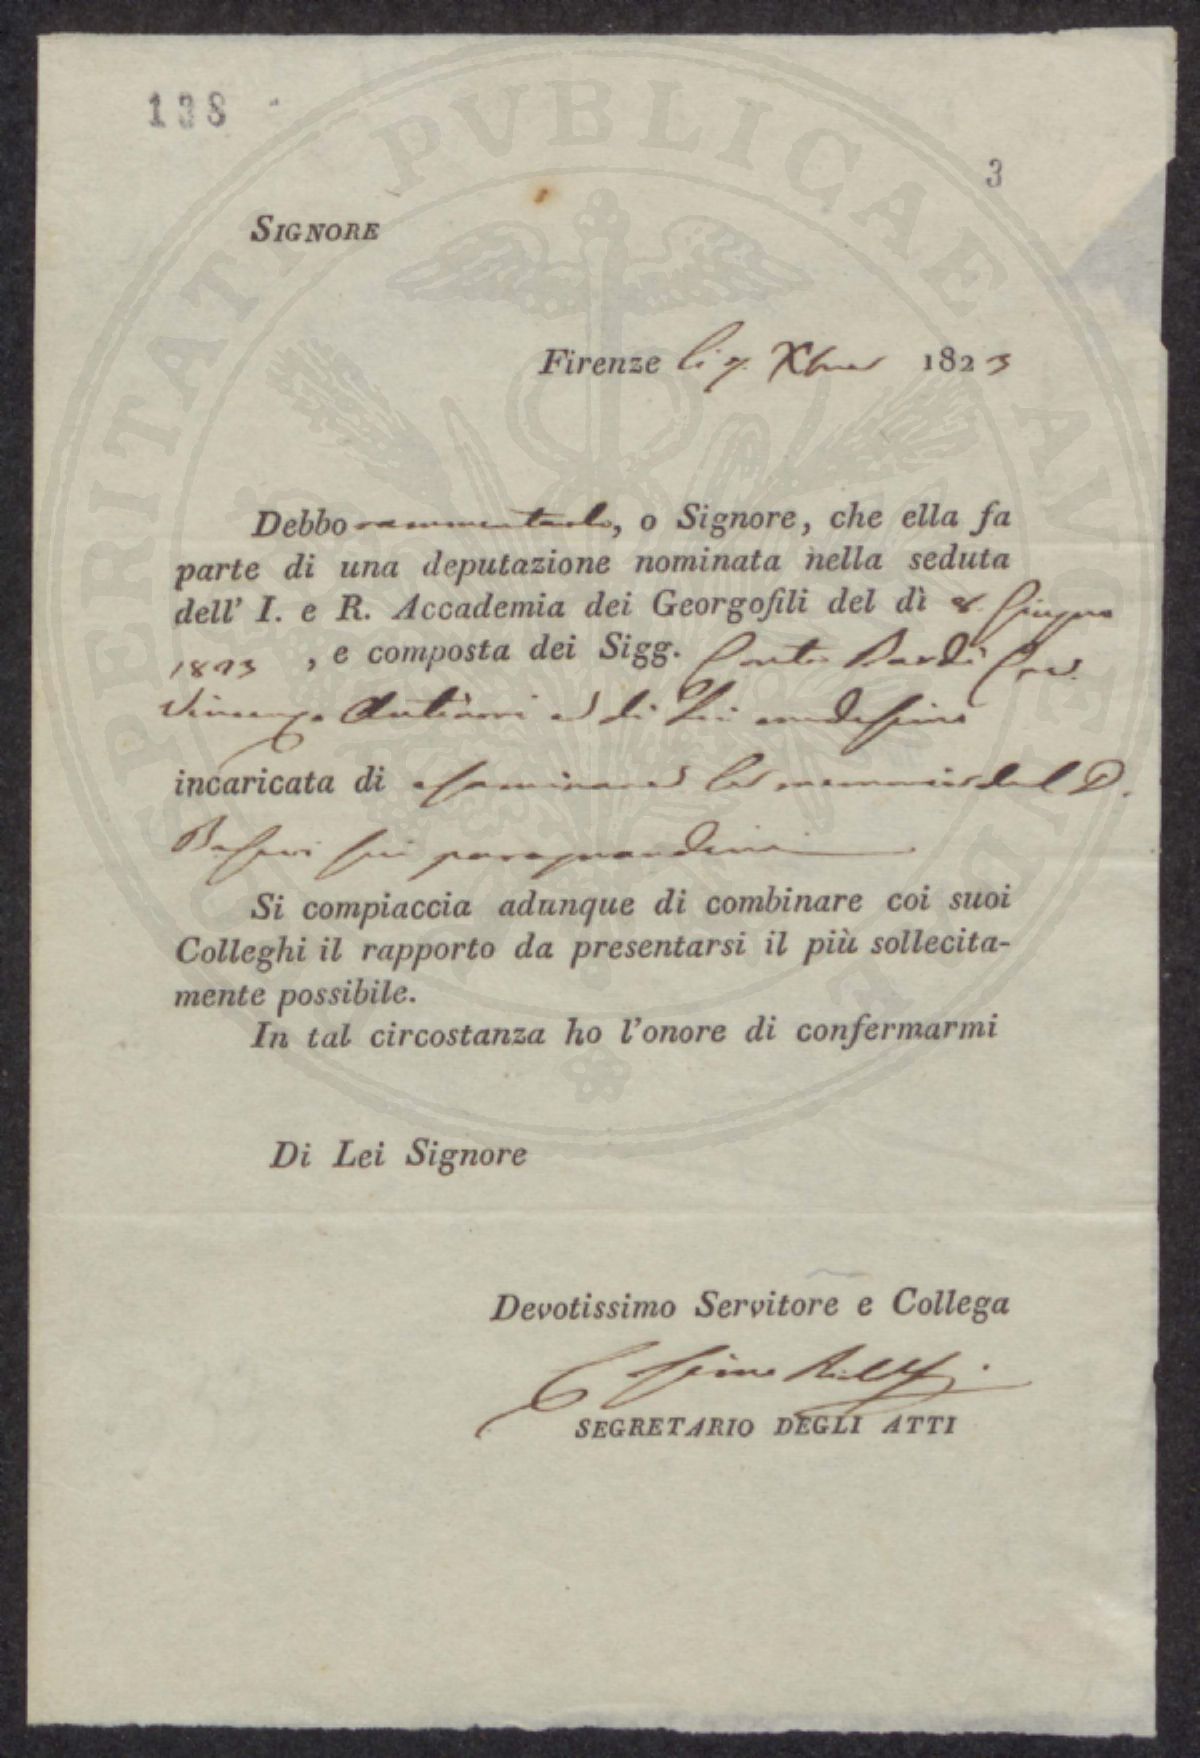 138
3
PROSPERITATI PVBLICAE AVGENDAE
SIGNORE
Firenze li 7. Xbre 1823
Debbo rammentarle, o Signore, che ella fa
parte di una deputazione nominata nella seduta
dell' I. e R. Accademia dei Georgofili del dì 8. Giugno
1823, e composta dei Sigg. Conte Bardi Cav.
Vincenzo Antinori e di Lei medesimo
incaricata di esaminare la memoria del D.
sui paragrandini
Si compiaccia adunque di combinare coi suoi
Colleghi il rapporto da presentarsi il più sollecita-
mente possibile.
In tal circostanza ho l'onore di confermarmi
Di Lei Signore
Devotissimo Servitore e Collega
Cosimo Ridolfi
SEGRETARIO DEGLI ATTI